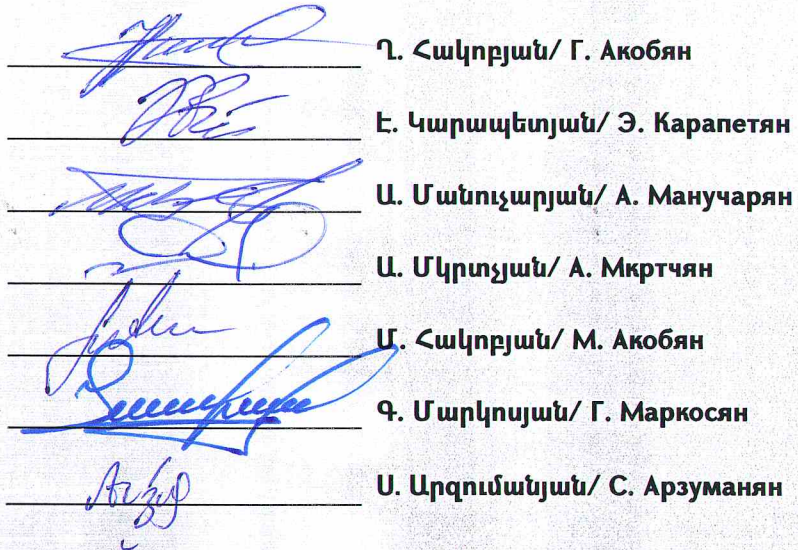 Ղ. Հակոբյան/ Г. Акобян
Է. Կարապետյան/ Э. Карапетян
Ա. Մանուչարյան/ А. Манучарян
Ա. Մկրտչյան/ А. Мкртчян
Մ. Հակոբյան/ М. Акобян
Գ. Մարկոսյան/ Г. Маркосян
Ս. Արզումանյան/ С. Арзуманян